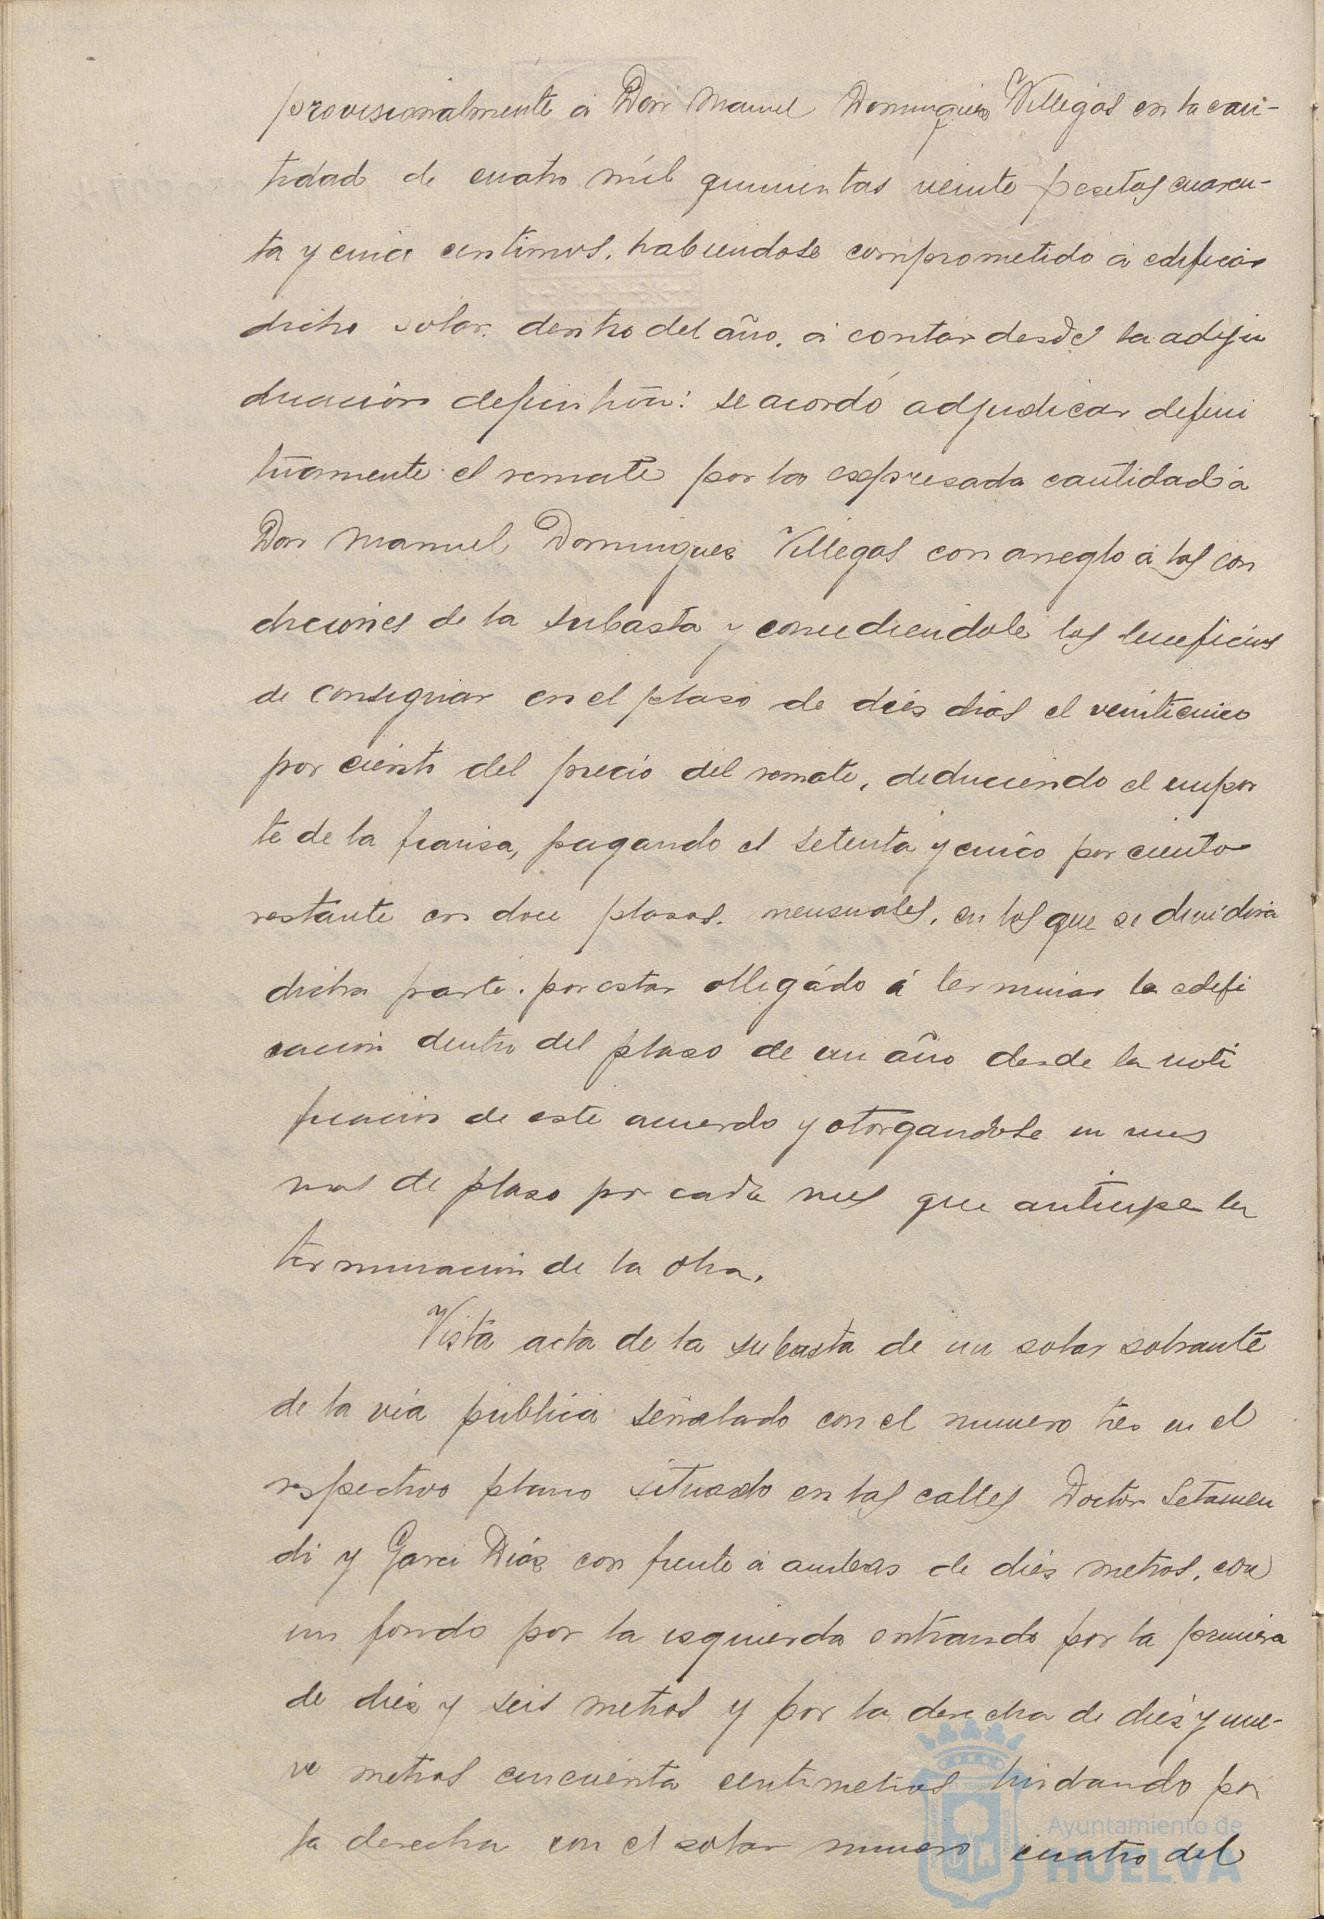 provisionalmente á Don Manuel Dominguez Villegas en la can-
tidad de cuatro mil quinientas veinte pesetas cuaren-
ta y cinco centimos, habiendose comprometido á edificar
dicho solar dentro del año, á contar desde la adju
dicación definitiva: se acordó adjudicar defini
tivamente el remate por la expresada cantidad á
Don Manuel Dominguez Villegas con arreglo á las con
diciones de la subasta y concediendole los beneficios
de consignar en el plazo de diés dias el veinticinco
por ciento del precio del remate, deduciendo el impor
te de la fianza, pagando el setenta y cinco por ciento
restante en doce plazos mensuales, en los que se dividirá
dicha parte, por estar obligado á terminar la edifi
cación dentro del plazo de un año desde la noti
ficación de este acuerdo y otorgandole un mes
mas de plazo por cada mes que anticipe la
terminación de la obra.
Vista acta de la subasta de un solar sobrante
de la vía pública señalado con el numero tres en el
respectivo plano situado en las calles Doctor Letamen
di y Garci Diáz con frente á ambas de diés metros, con
un fondo por la izquierda entrando por la primera
de diéz y seis metros y por la derecha de diéz y nue-
ve metros cincuenta centimetros lindando por
la derecha con el solar numero cuatro del
Ayuntamiento de
HUELVA